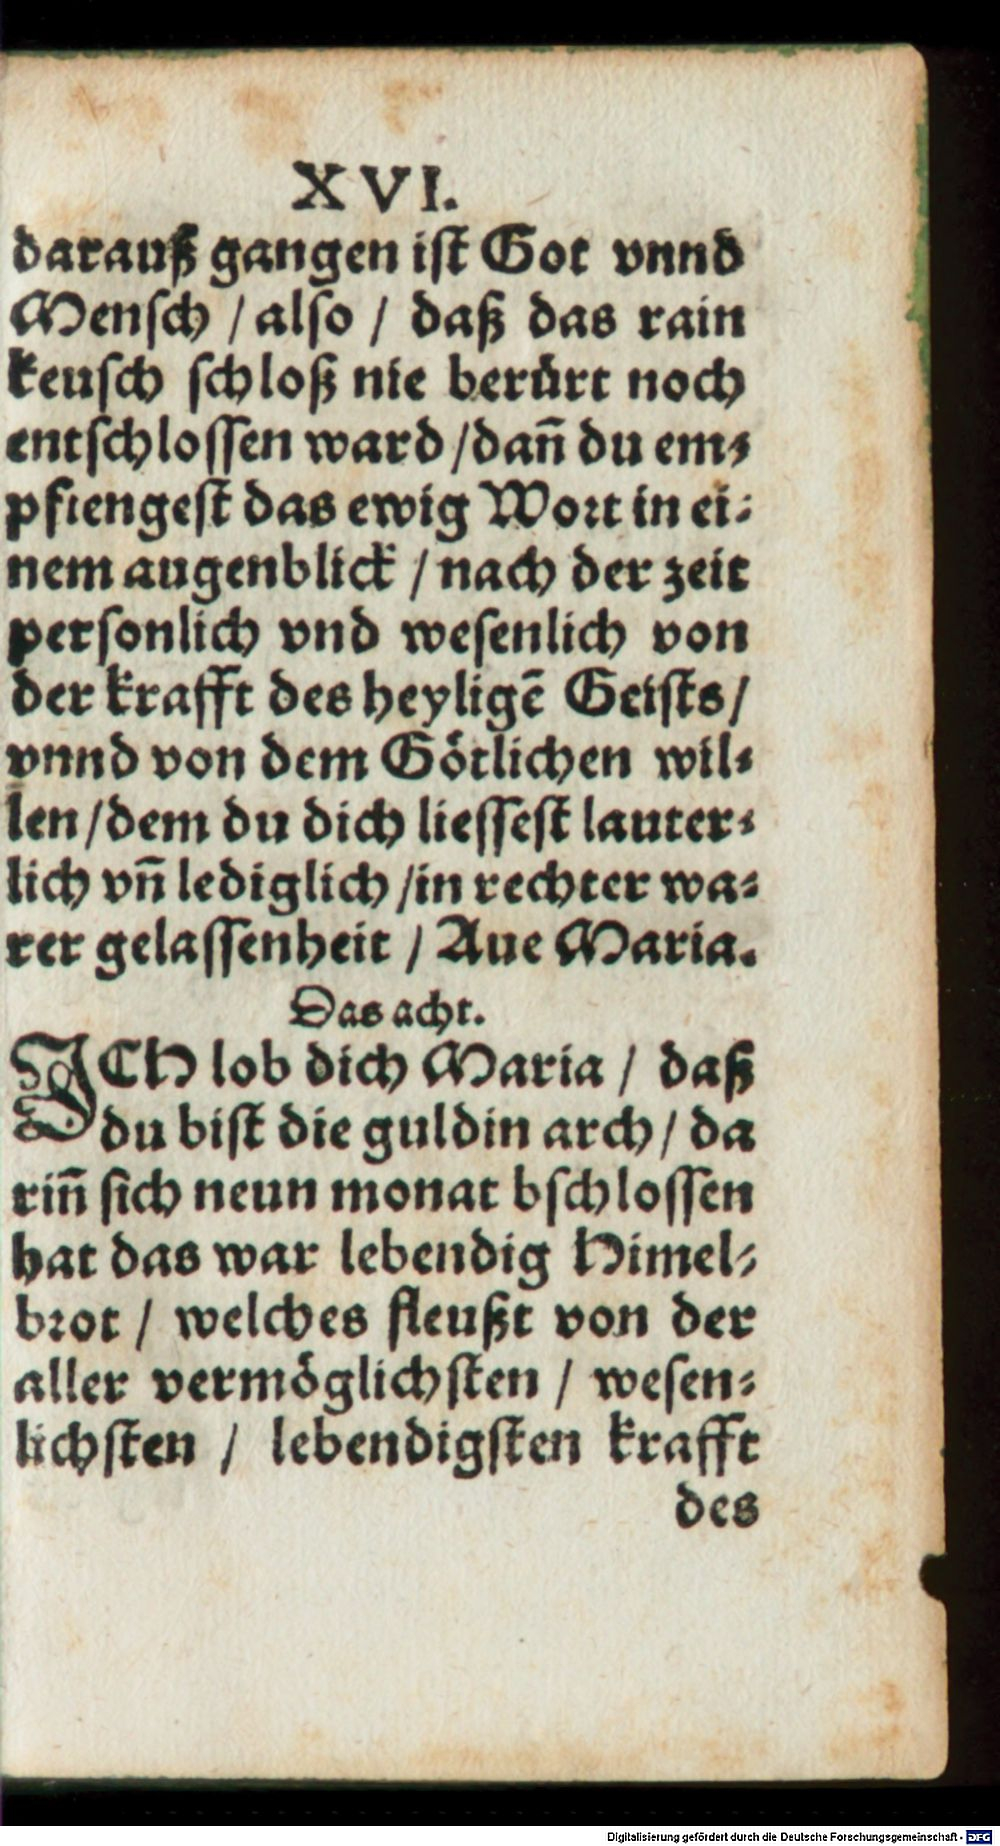 XVI.
darauß gangen ist Got vnnd
Mensch / also / daß das rain
keusch schloß nie berürt noch
entschlossen ward / dañ du em⸗
pfiengest das ewig Wort in ei⸗
nem augenblick / nach der zeit
personlich vnd wesenlich von
der krafft des heyligē Geists /
vnnd von dem Götlichen wil⸗
len / dem du dich liessest lauter⸗
lich vñ lediglich / in rechter wa⸗
rer gelassenheit / Aue Maria.
Das acht.
ICH lob dich Maria / daß
du bist die guldin arch / da
riñ sich neun monat bschlossen
hat das war lebendig Himel⸗
brot / welches fleußt von der
aller vermöglichsten / wesen⸗
lichsten / lebendigsten krafft
des
Digitalisierung gefördert durch die Deutsche Forschungsgemeinschaft - DFG